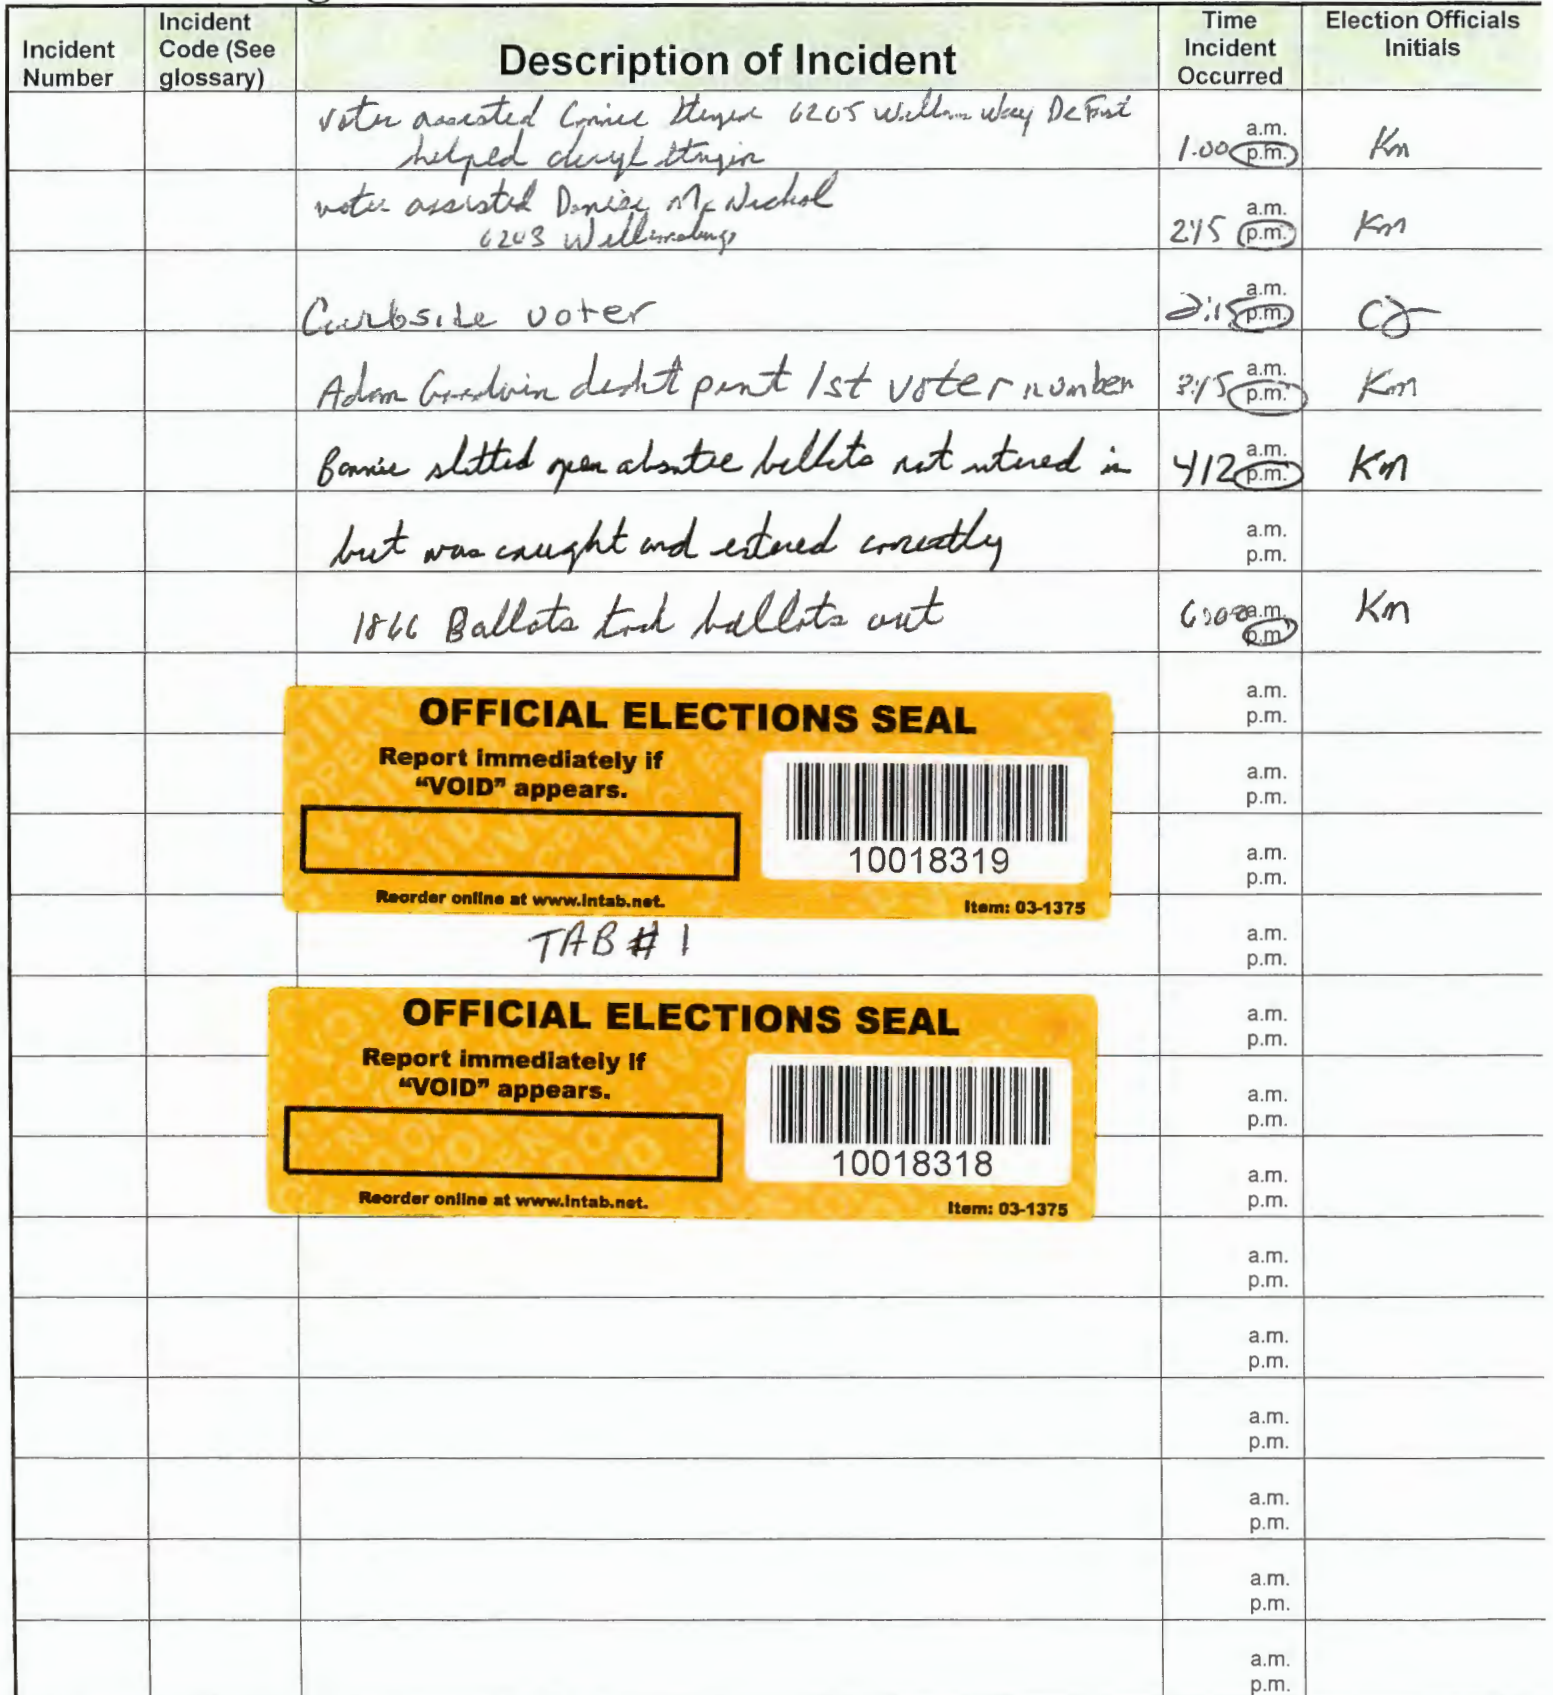 Incident Number
Incident Code (See glossary)
Description of Incident
Time Incident Occurred
Election Officials Initials
voter assisted Connie 6205 Way DeForest
helped
1:00 a.m. p.m.
Km
voter assisted Denise McNichol
6203
2:15 a.m. p.m.
Km
Curbside voter
2:15 a.m. p.m.
CJ
Adam Goodwin didn't print 1st voter number
3:15 a.m. p.m.
Km
Bonnie slitted open absentee ballots not entered in
412 a.m. p.m.
Km
but was caught and entered correctly
a.m.
p.m.
1866 Ballots took ballots out
6:00 a.m. p.m.
Km
a.m.
p.m.
OFFICIAL ELECTIONS SEAL
Report immediately if
"VOID" appears.
10018319
Reorder online at www.intab.net.
Item: 03-1375
a.m.
p.m.
a.m.
p.m.
TAB # 1
a.m.
p.m.
OFFICIAL ELECTIONS SEAL
Report immediately if
"VOID" appears.
10018318
Reorder online at www.intab.net.
Item: 03-1375
a.m.
p.m.
a.m.
p.m.
a.m.
p.m.
a.m.
p.m.
a.m.
p.m.
a.m.
p.m.
a.m.
p.m.
a.m.
p.m.
a.m.
p.m.